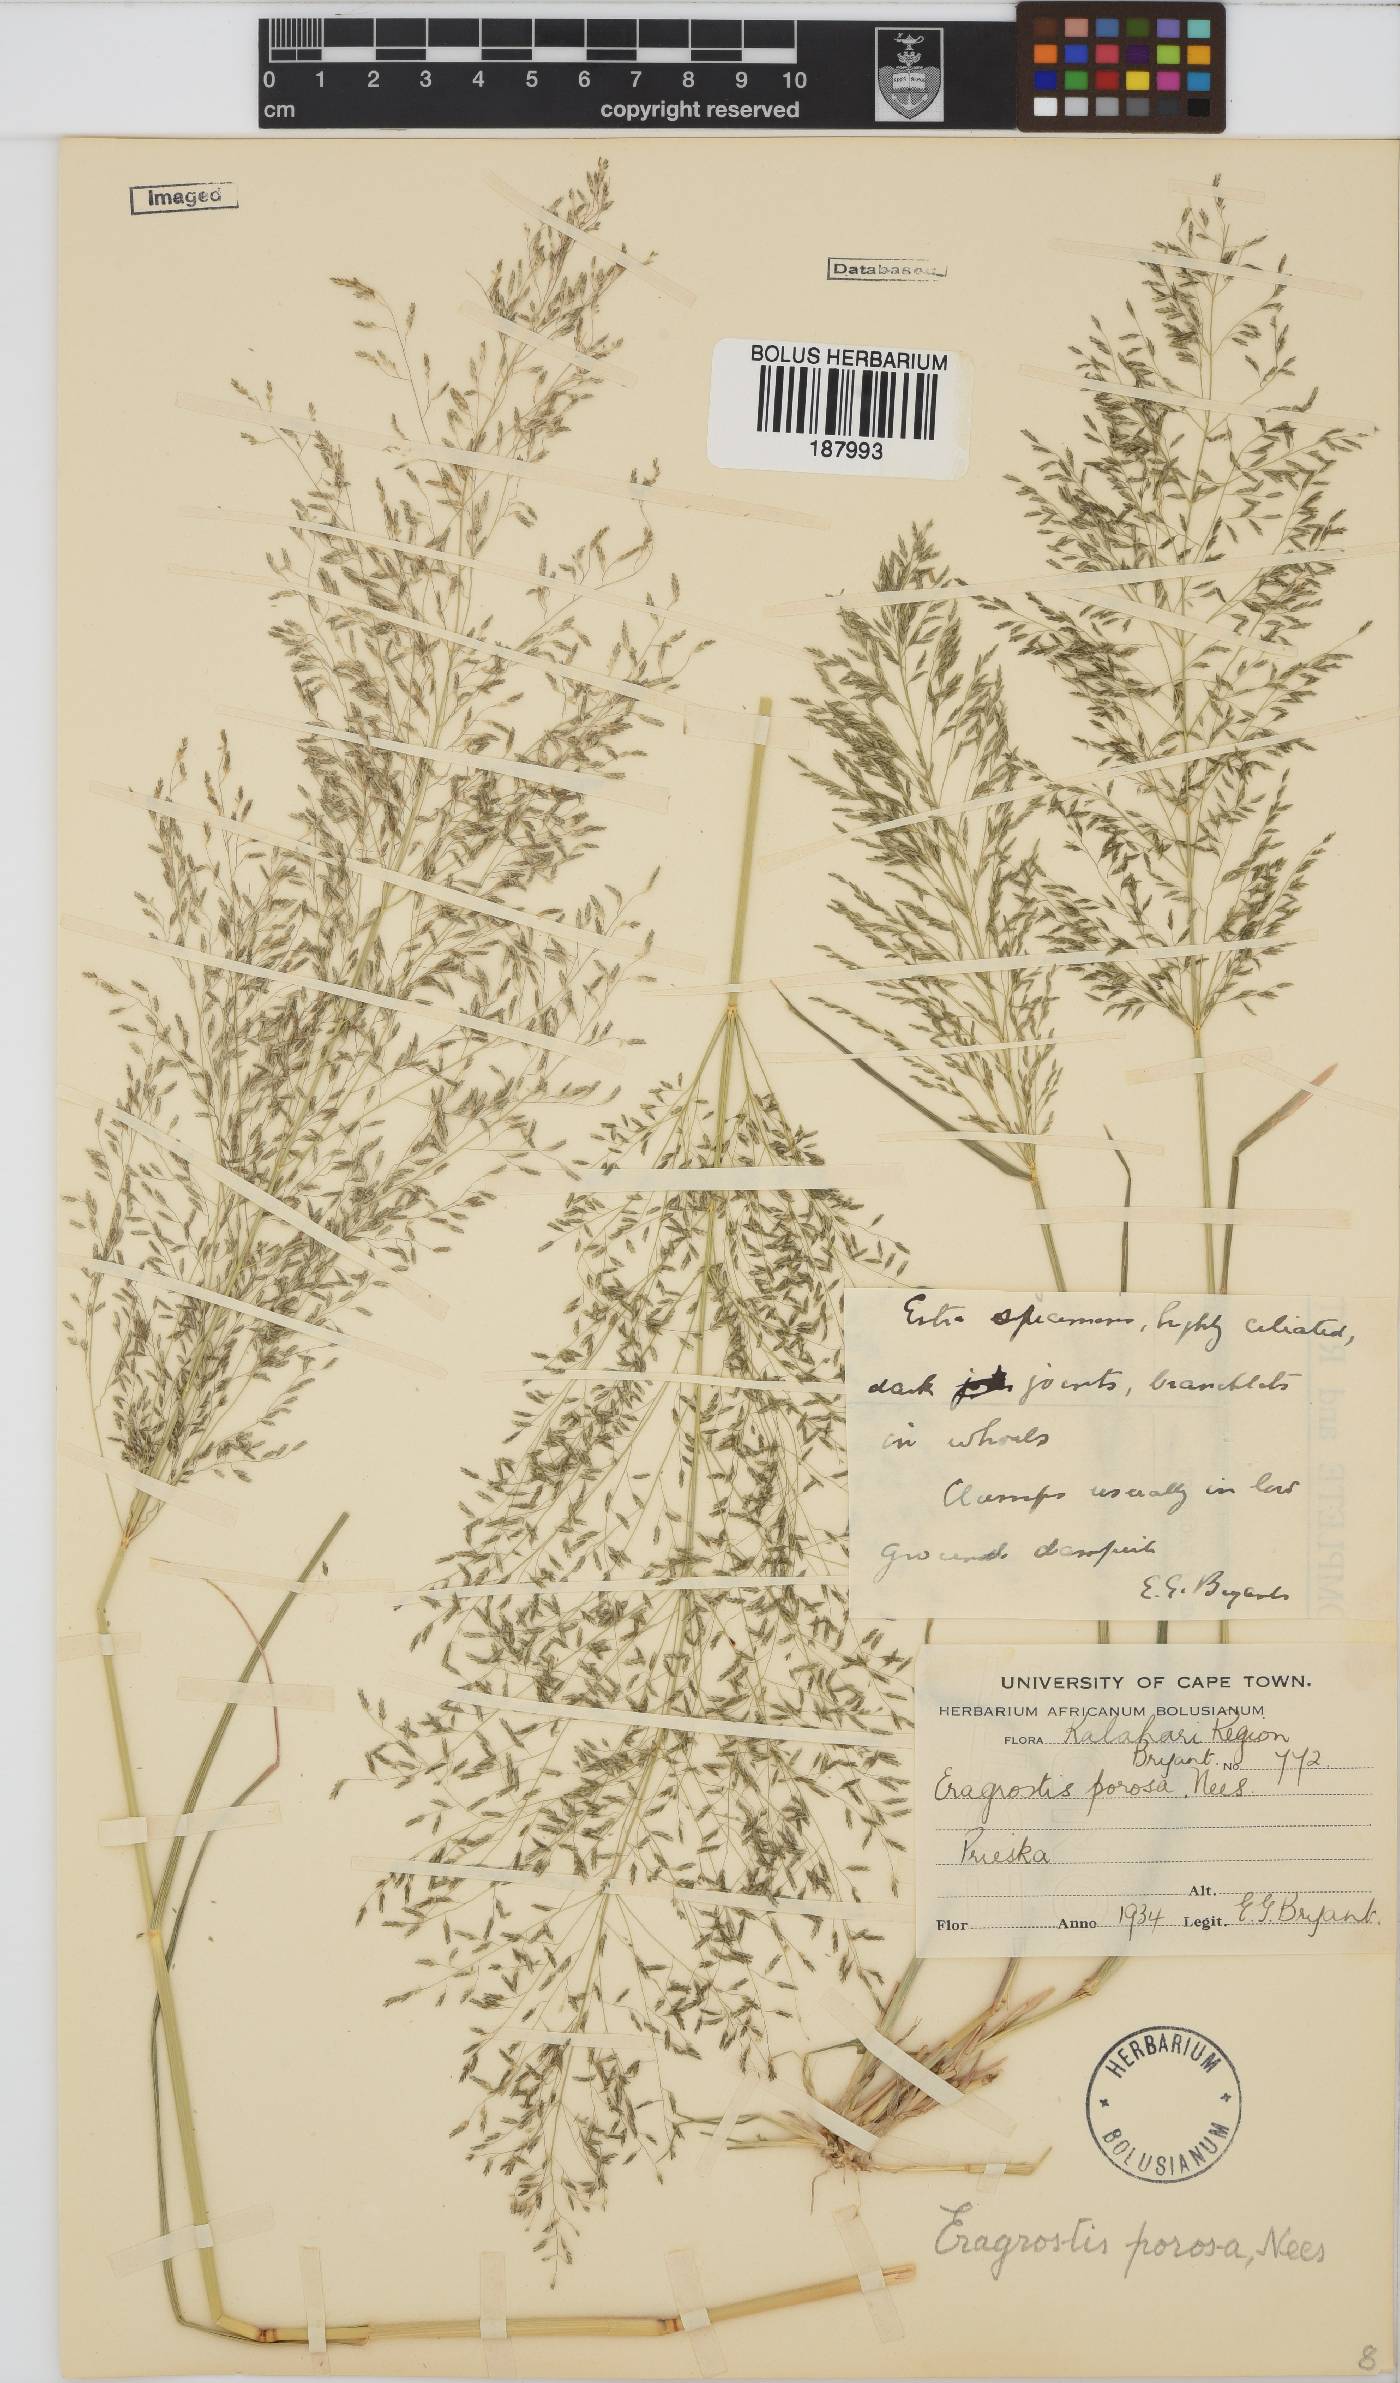 0 1 2 3 4 5 6 7 8 9 10
cm copyright reserved
Imaged
Databased
BOLUS HERBARIUM
187993
Extra specimens, highly ciliated,
dark joints, branchlets
in whorls
Clumps usually in low
ground
E. G. Bryant
UNIVERSITY OF CAPE TOWN.
HERBARIUM AFRICANUM BOLUSIANUM
FLORA Kalahari Region
Bryant. No 772.
Eragrostis porosa, Nees
Prieska
Alt.
Flor Anno 1934 Legit. E. G. Bryant.
HERBARIUM
BOLUSIANUM
Eragrostis porosa, Nees
8